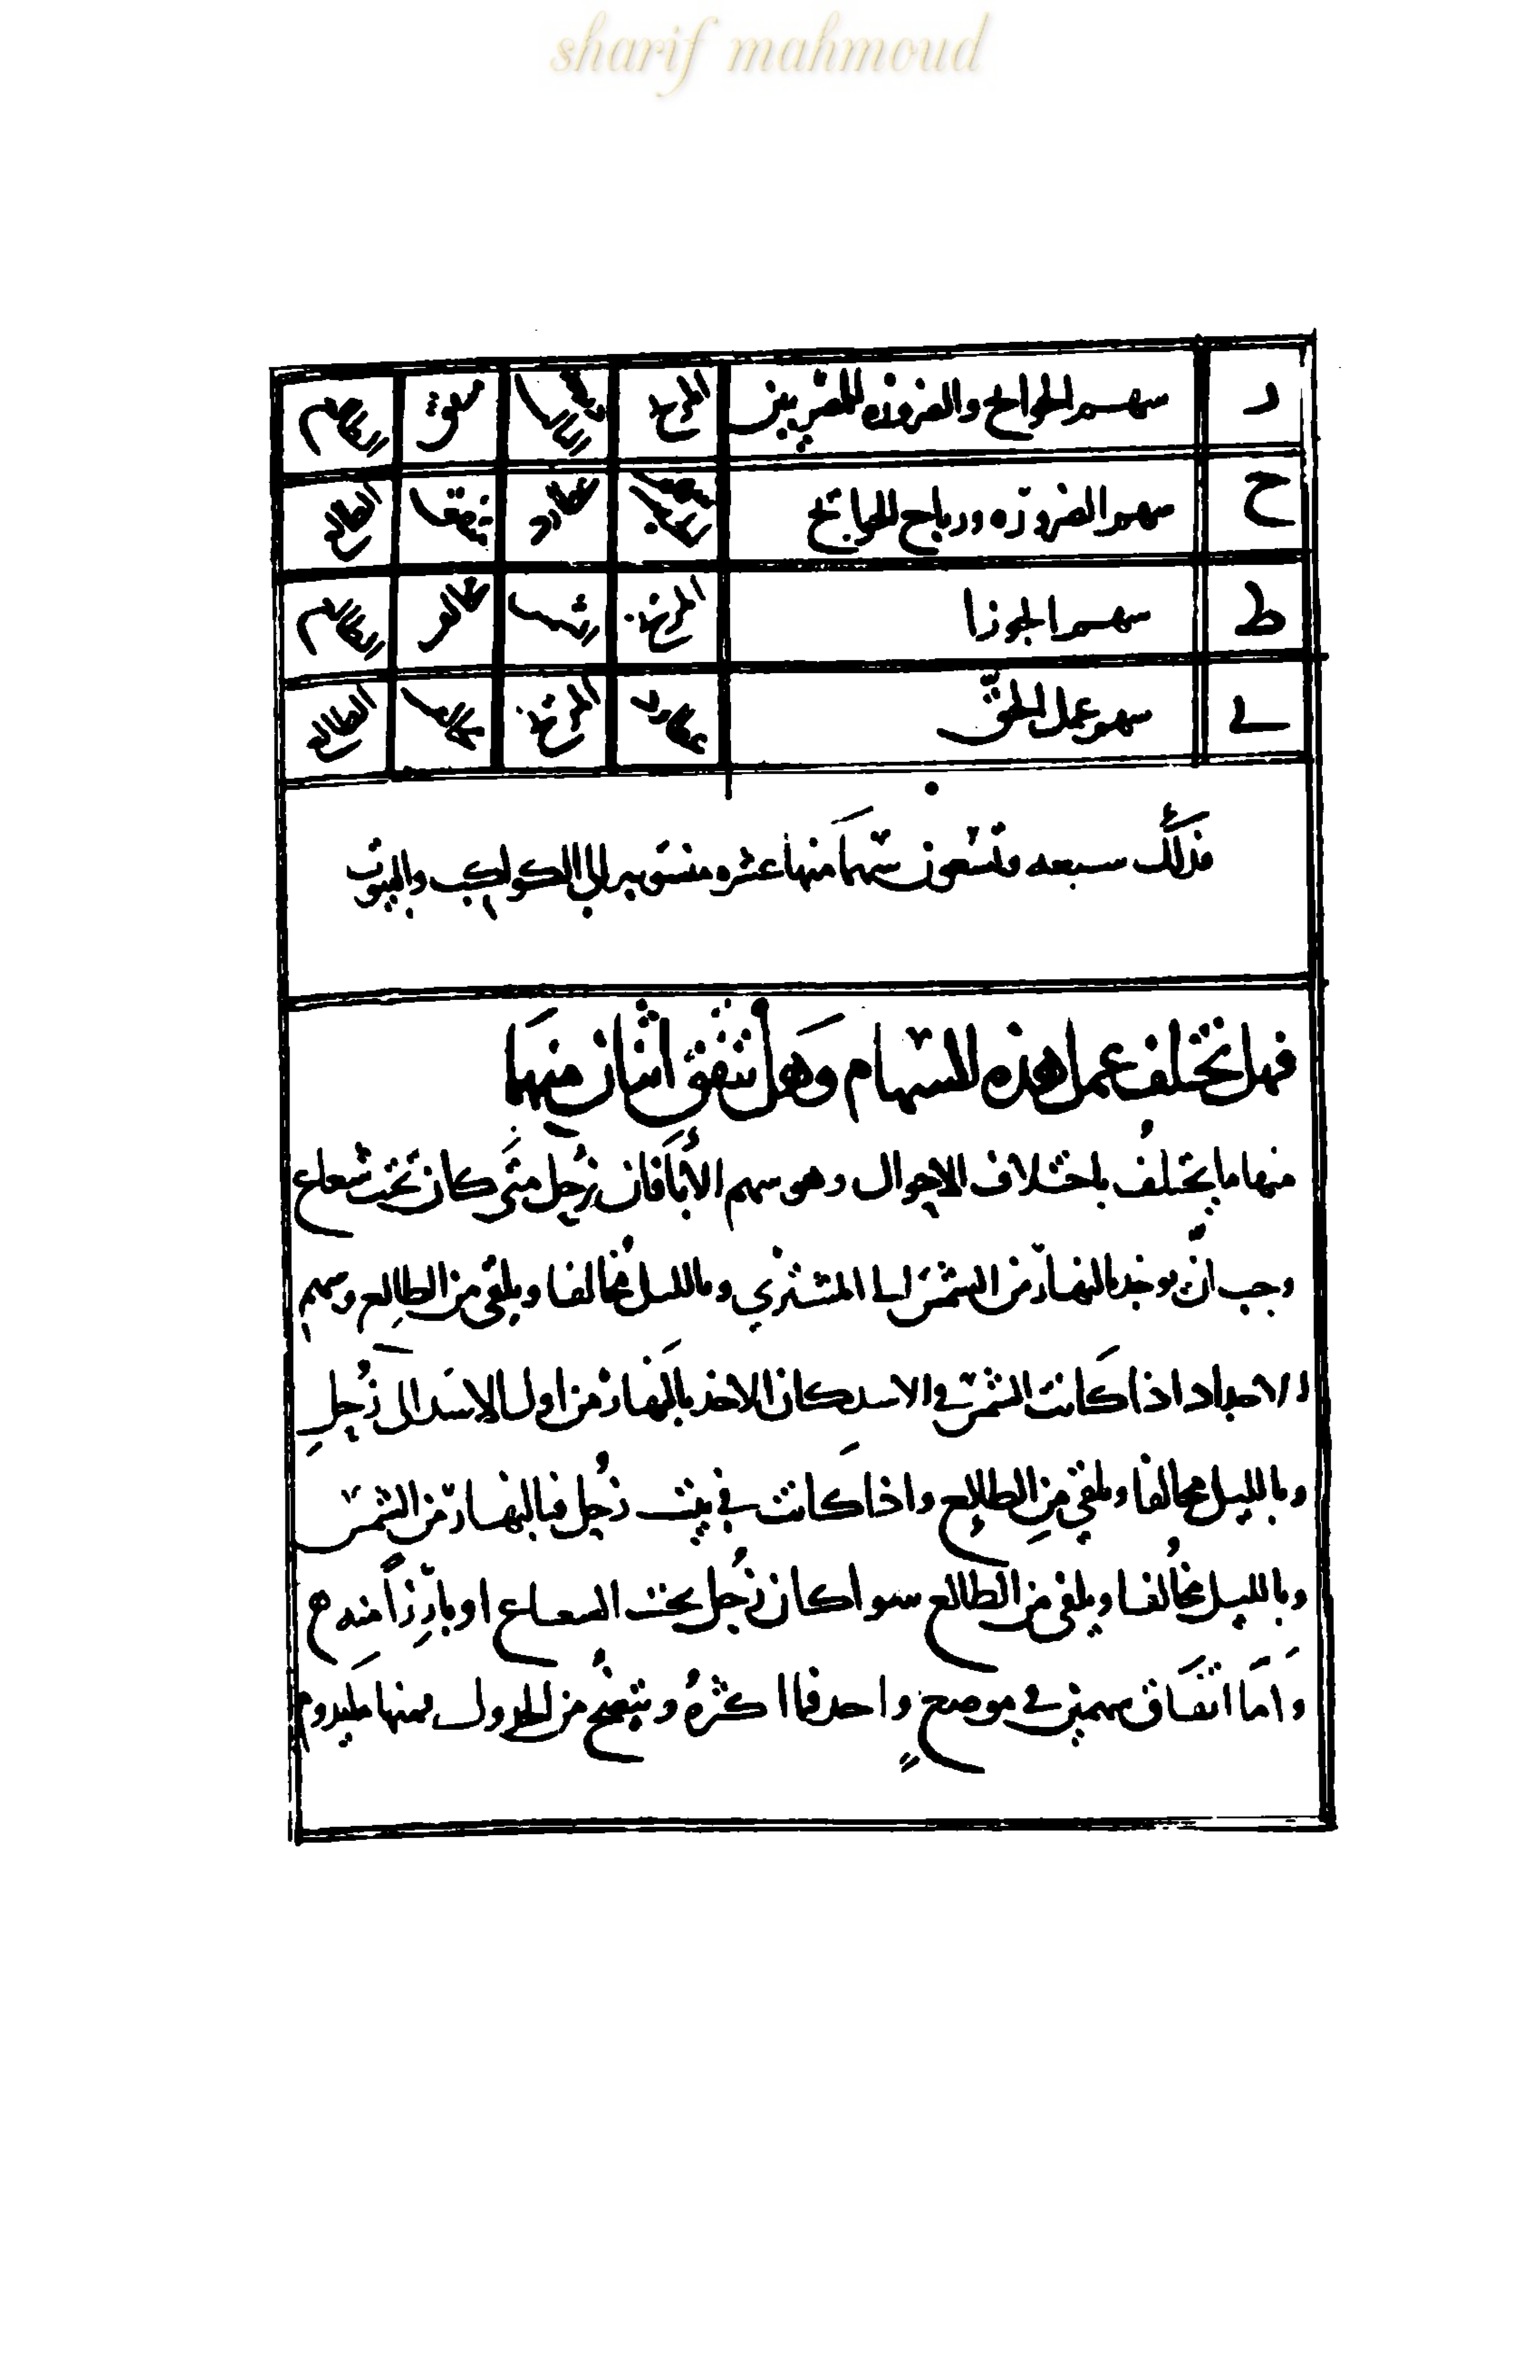 sharif mahmoud
د سهم الحوائج والضروره للمصريين المريخ يتفق الطالع
ح سهم الضروره ورباح للحوايج عطارد الطالع
ط سهم الجوزا المريخ
ے سهم عمل الحق عطارد المريخ الطالع
فذلك سبعه وتسعون سهما منها عشره منسوبه الى الكواكب والبيوت
فهل تختلف عمل هذه السهام وهل تتفق اثنان منها
منها ما يختلف باختلاف الاحوال وهو سهم الأبا فان زحل متى كان تحت شعاع
وجب ان يوخذ بالنهار من الشمس الى المشتري وبالليل مخالفا ويلقى من الطالع وسهم
الاجداد اذا كانت الشمس في الاسد كان الاخذ بالنهار من اول الاسد الى زحل
وبالليل مخالفا ويلقى من الطالع واذا كانت في بيت زحل فبالنهار من الشمس
وبالليل مخالفا ويلقى من الطالع سوا كان زحل تحت الشعاع او بارزا منه ه
واما اتفاق سهمين في موضع واحد فما اكثره ويتضح من الجدول فمنها ما يدوم